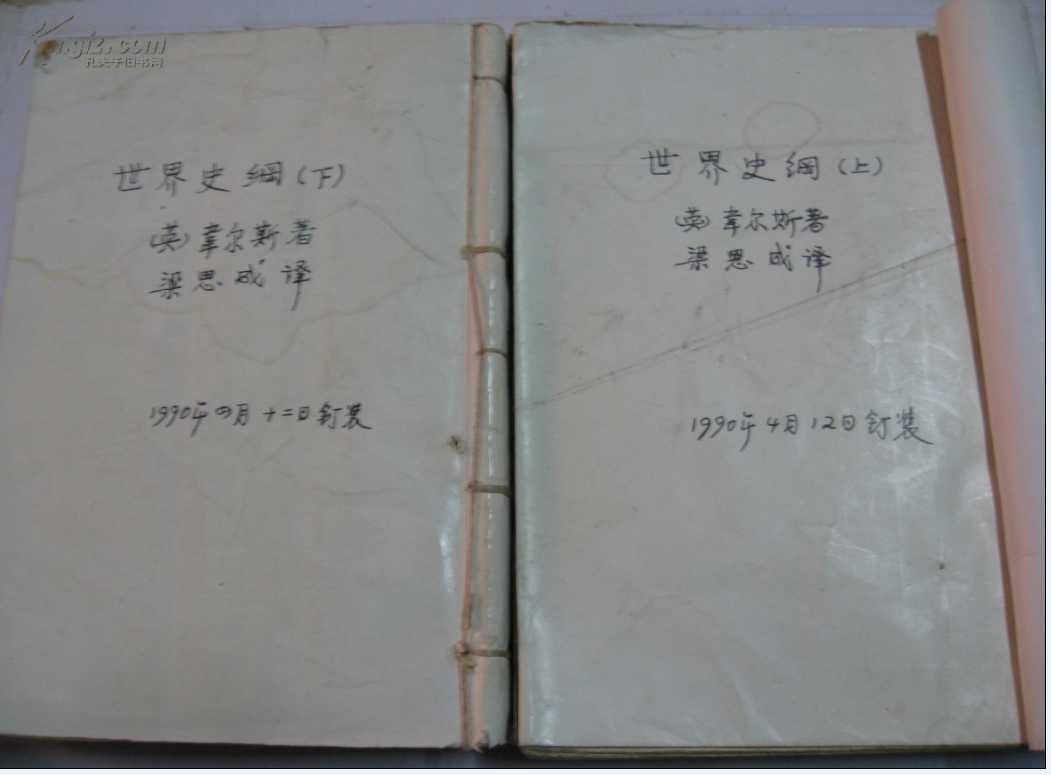 Kongfz.com
孔夫子旧书网
世界史纲(下)
(英)韋尔斯著
梁思成译
1990年四月十二日钉装
世界史纲(上)
(英)韋尔斯著
梁思成译
1990年4月12日钉装